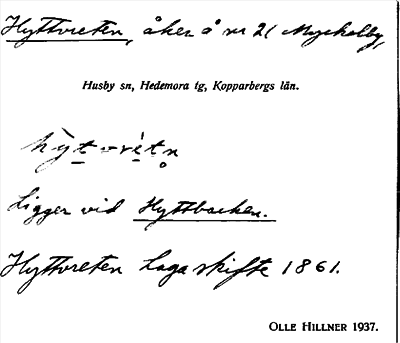 Hyttvreten, åker å nr 21 Myckelby,
Husby sn, Hedemora tg, Kopparbergs län.
Ligger vid Hyttbacken.
Hyttvreten Laga skifte 1861.
OLLE HILLNER 1937.